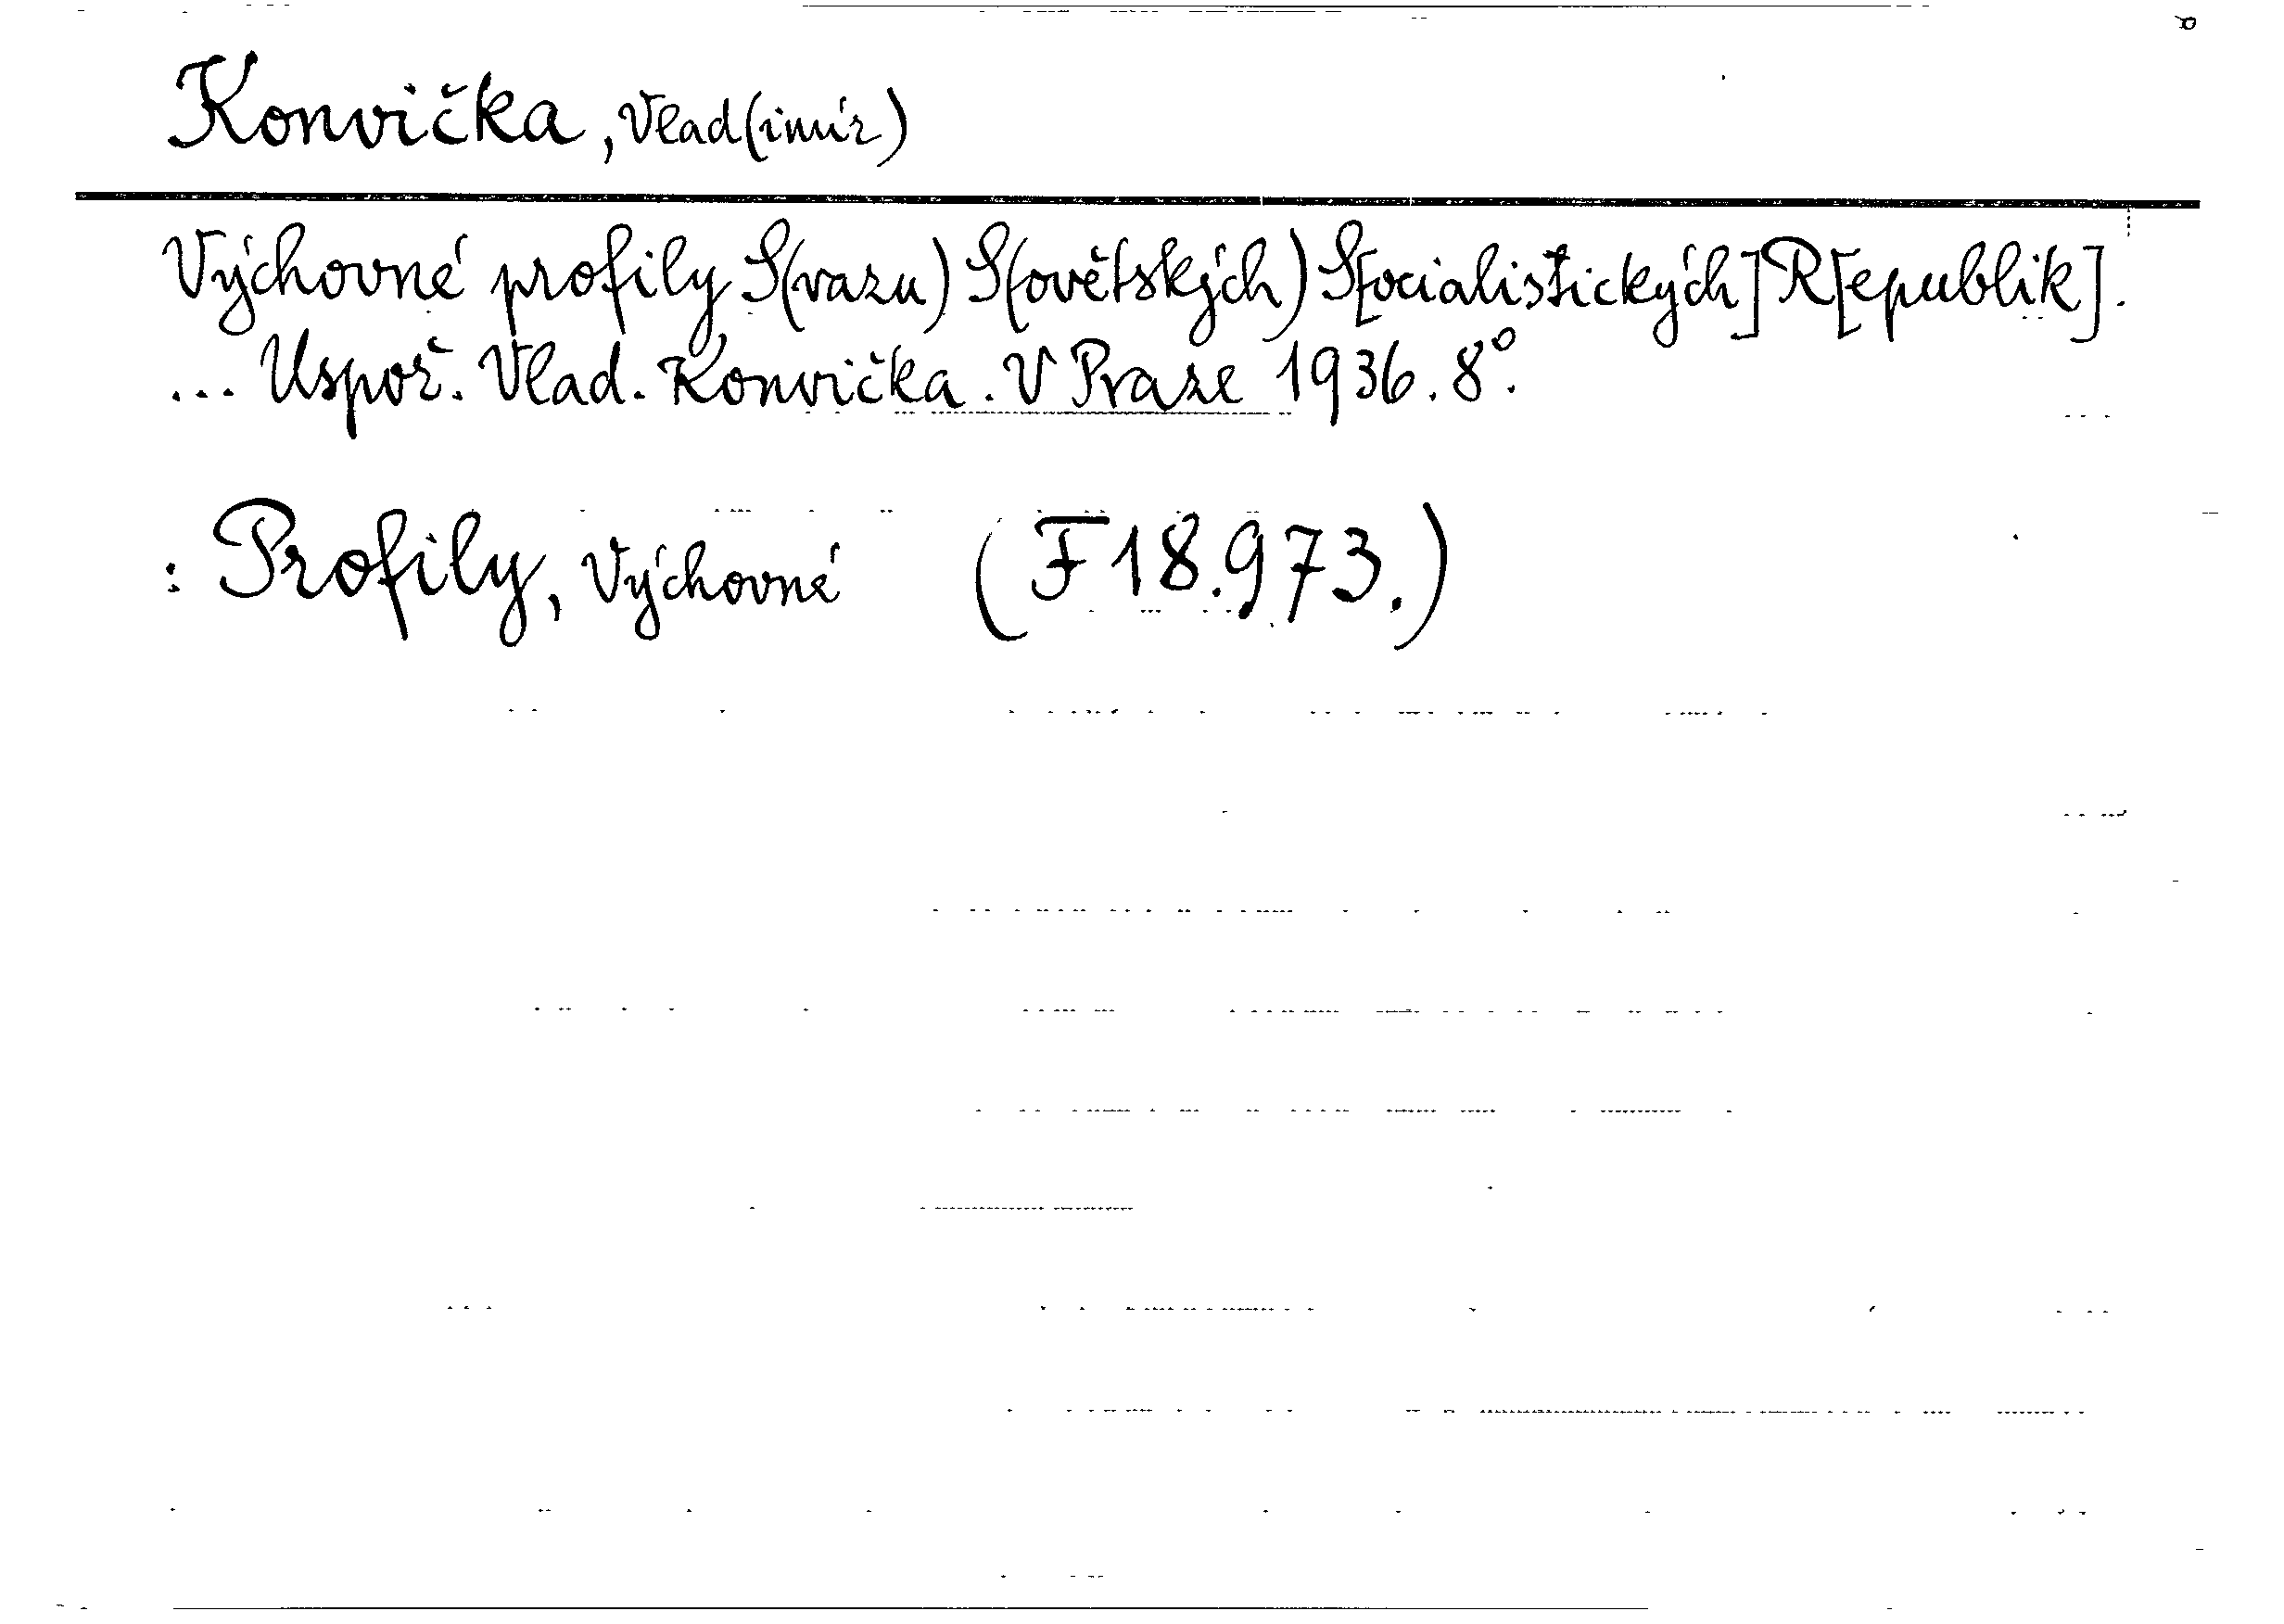 Konvička, Vlad(imír)
Výchovné profily S(vazu) S(ovětských) S[ocialistických] R[epublik].
... Uspoř. Vlad. Konvička. V Praze 1936. 8°.
: Profily, Výchovné (F 18.973.)